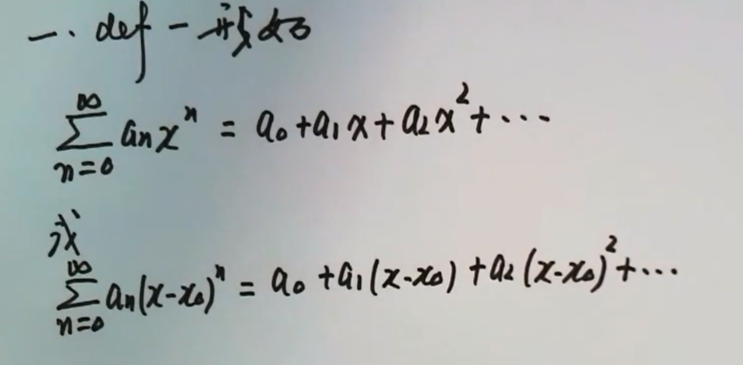 一. def - 形如
∑_{n=0}^{∞} aₙxⁿ = a₀+a₁x+a₂x²+⋯
或
∑_{n=0}^{∞} aₙ(x-x₀)ⁿ = a₀+a₁(x-x₀)+a₂(x-x₀)²+⋯